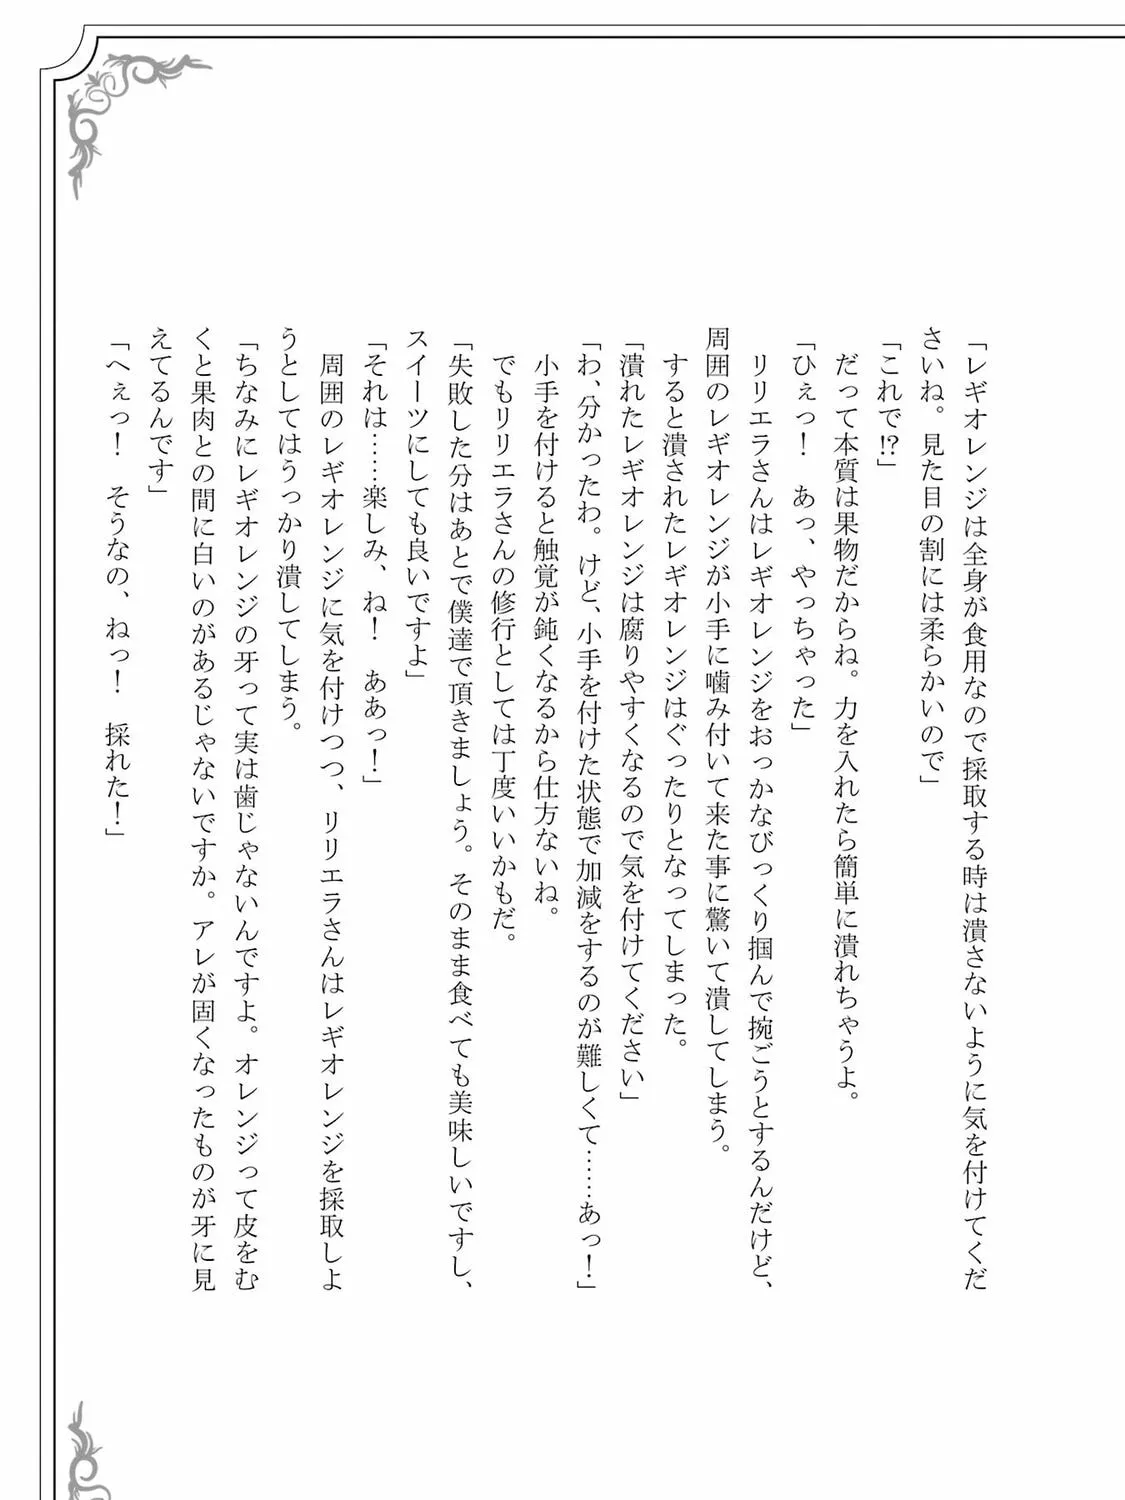 「レギオレンジは全身が食用なので採取する時は潰さないように気を付けてくだ
さいね。見た目の割には柔らかいので」
「これで!?」
　だって本質は果物だからね。力を入れたら簡単に潰れちゃうよ。
「ひぇっ！　あっ、やっちゃった」
　リリエラさんはレギオレンジをおっかなびっくり掴んで捥ごうとするんだけど、
周囲のレギオレンジが小手に噛み付いて来た事に驚いて潰してしまう。
　すると潰されたレギオレンジはぐったりとなってしまった。
「潰れたレギオレンジは腐りやすくなるので気を付けてください」
「わ、分かったわ。けど、小手を付けた状態で加減をするのが難しくて……あっ！」
　小手を付けると触覚が鈍くなるから仕方ないね。
　でもリリエラさんの修行としては丁度いいかもだ。
「失敗した分はあとで僕達で頂きましょう。そのまま食べても美味しいですし、
スイーツにしても良いですよ」
「それは……楽しみ、ね！　ああっ！」
　周囲のレギオレンジに気を付けつつ、リリエラさんはレギオレンジを採取しよ
うとしてはうっかり潰してしまう。
「ちなみにレギオレンジの牙って実は歯じゃないんですよ。オレンジって皮をむ
くと果肉との間に白いのがあるじゃないですか。アレが固くなったものが牙に見
えてるんです」
「へぇっ！　そうなの、ねっ！　採れた！」